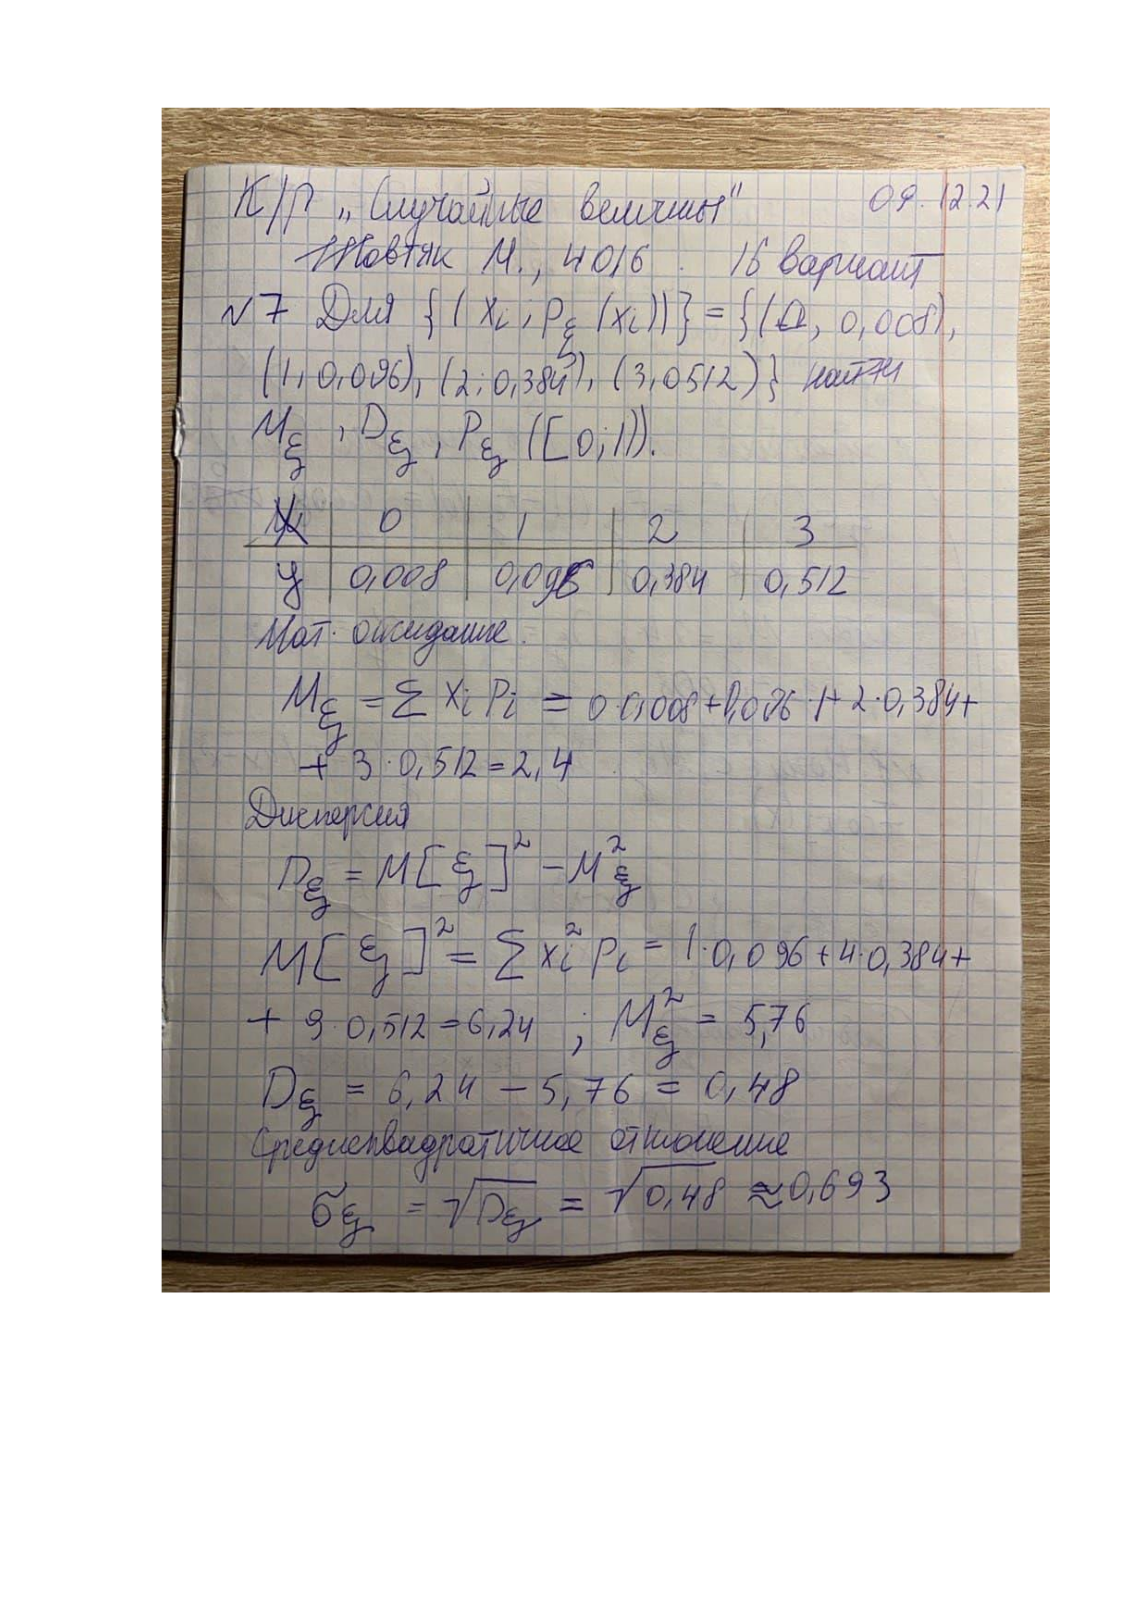 К/р „Случайные величины" 09.12.21
Жовтяк М., 4016 16 вариант
№7 Для {(xᵢ; p_ξ(xᵢ))} = {(0, 0,008),
(1, 0,096), (2; 0,384), (3, 0512)} найти
M_ξ, D_ξ, P_ξ ([0;1)).
0 1 2 3
y 0,008 0,096 0,384 0,512
Мат. ожидание.
M_ξ = Σ xᵢ pᵢ = 0·0,008+0,096·1+2·0,384+
+ 3·0,512=2,4
Дисперсия
D_ξ = M[ξ]² − M²_ξ
M[ξ]² = Σ xᵢ² pᵢ = 1·0,096+4·0,384+
+ 9·0,512=6,24 ; M²_ξ = 5,76
D_ξ = 6,24 − 5,76 = 0,48
Среднеквадратичное отклонение
σ_ξ = √D_ξ = √0,48 ≈ 0,693